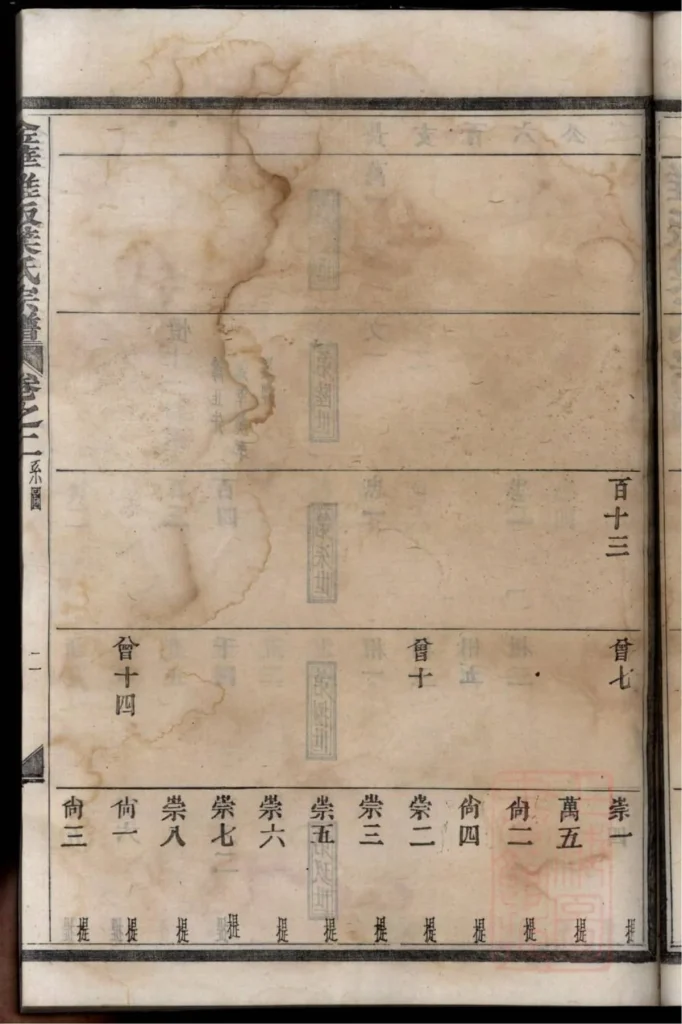 金華雅坂葉氏宗譜
卷之二
系圖
二
百十三
曾七
曾十
曾十四
崇一
萬五
尙二
尙四
崇二
崇三
崇五
崇六
崇七
崇八
尙一
尙三
提
提
提
提
提
提
提
提
提
提
提
提